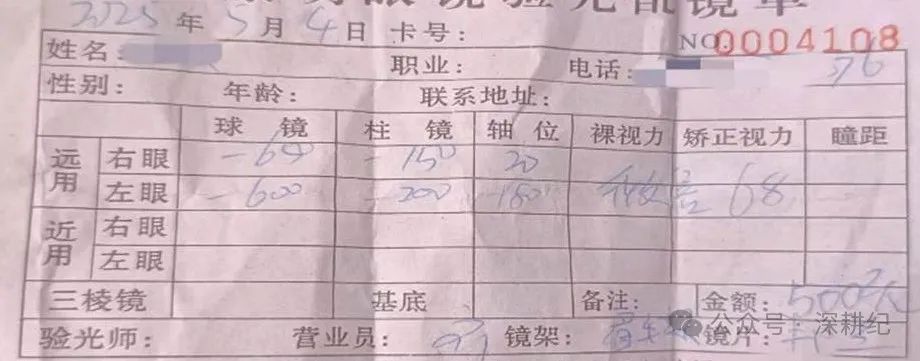 眼镜验光配镜单
2025年5月4日 卡号: NO.0004108
姓名: 职业: 电话: 576
性别: 年龄: 联系地址:
球镜 柱镜 轴位 裸视力 矫正视力 瞳距
远用 右眼 -150 20
左眼 -600 -200 180 68
近用 右眼
左眼
三棱镜 基底 备注: 金额: 500
验光师: 营业员: 镜架: 镜片:
公众号:深耕纪